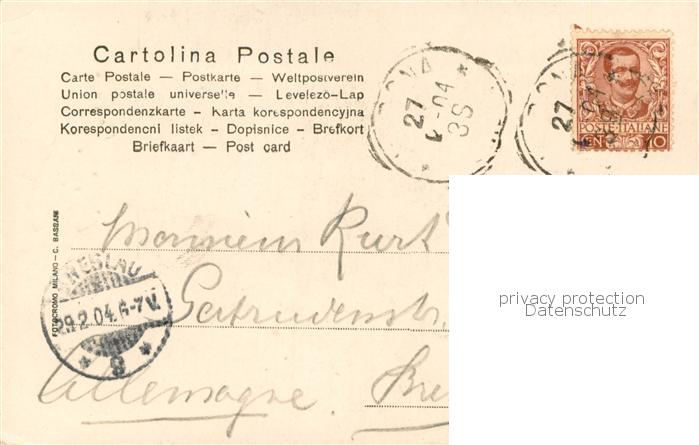 Cartolina Postale
Carte Postale — Postkarte — Weltpostverein
Union postale universelle — Levelező-Lap
Correspondenzkarte - Karta korespondencyjna
Korespondencni listek - Dopisnice - Brefkort
Briefkaart — Post card
27
04
3S
27
POSTE·ITALIANE
CENT 10
FOTOCROMO MILANO — C. BASSANI
BRESLAU
29.2.04.6-7V.
* 8 *
Monsieur Kurt
Gertrudenstr.
Allemagne. Bre
privacy protection
Datenschutz